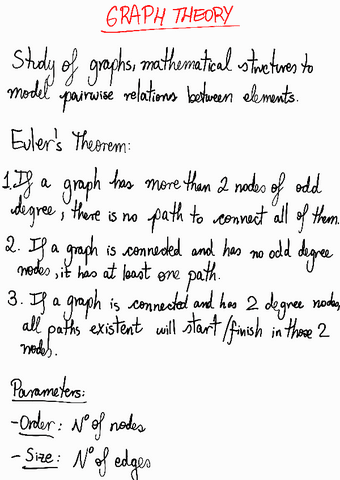 GRAPH THEORY
Study of graphs, mathematical structures to
model pairwise relations between elements.
Euler's Theorem:
1. If a graph has more than 2 nodes of odd
degree, there is no path to connect all of them.
2. If a graph is connected and has no odd degree
nodes, it has at least one path.
3. If a graph is connected and has 2 degree nodes,
all paths existent will start/finish in those 2
nodes.
Parameters:
-Order: Nº of nodes
- Size: Nº of edges